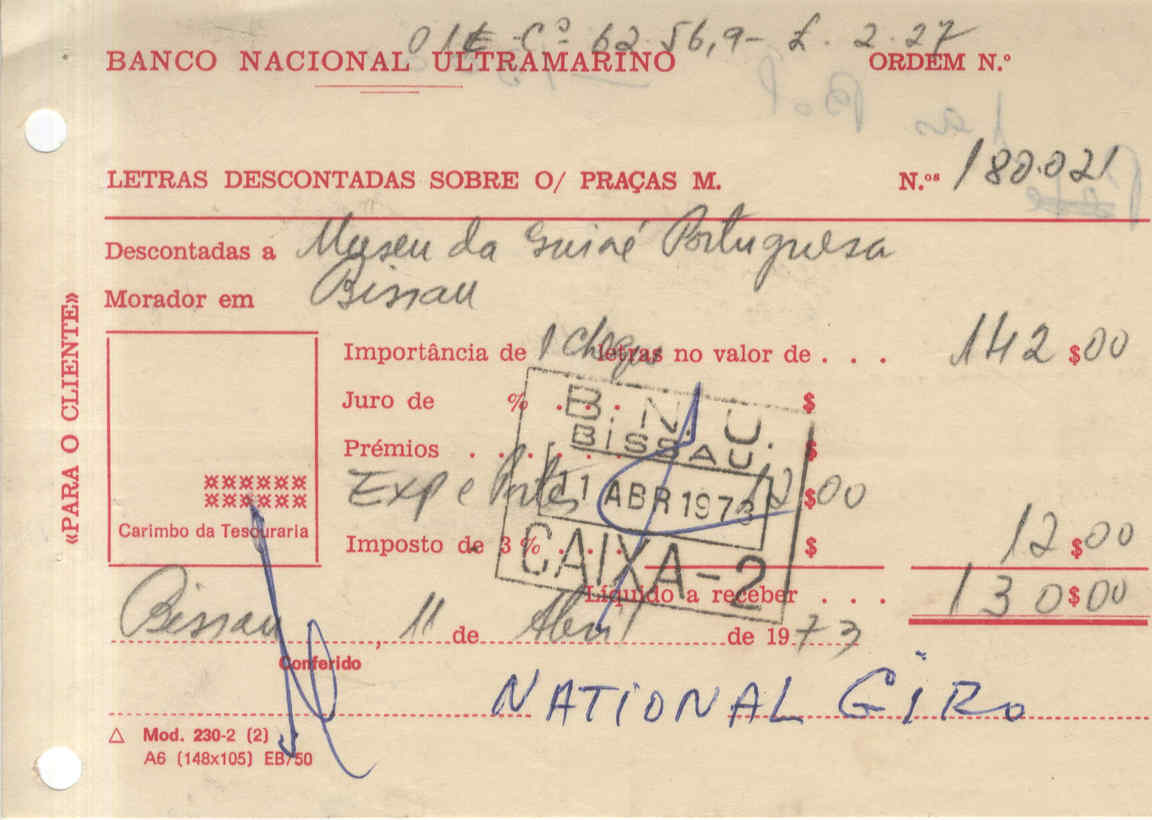 01€ - Cº 62.56,9 - £. 2.27
BANCO NACIONAL ULTRAMARINO ORDEM N.º
LETRAS DESCONTADAS SOBRE O/ PRAÇAS M. N.ºˢ 180.021
Descontadas a Museu da Guiné Portuguesa
Morador em Bissau
«PARA O CLIENTE»
Importância de 1 Cheque letras no valor de . . . 142$00
Juro de % . . . . $
Prémios . . . . . . $
Exp e Portes 12$00
Imposto de 3% . . . . $ 12$00
Líquido a receber . . . 130$00
Carimbo da Tesouraria
B.N.U.
BISSAU
11 ABR 1973
CAIXA-2
Bissau, 11 de Abril de 1973
Conferido
NATIONAL GIRO
△ Mod. 230-2 (2)
A6 (148x105) EB/50